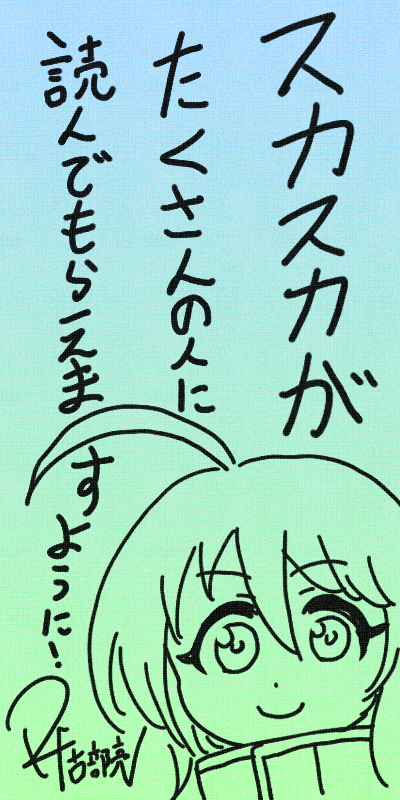 スカスカが
たくさんの人に
読んでもらえますように!